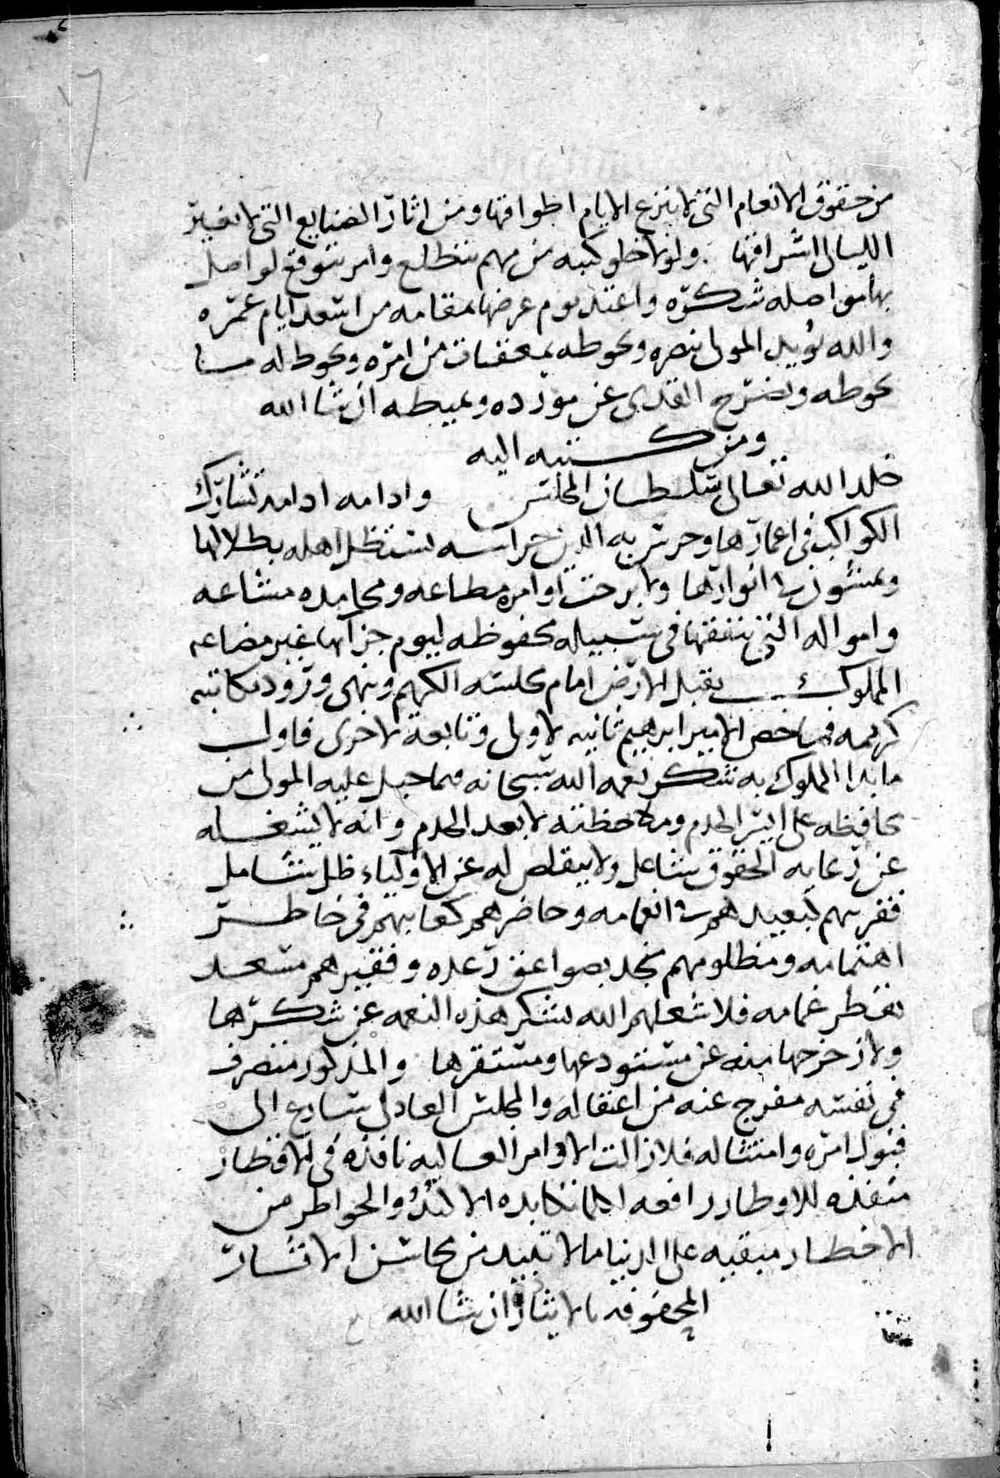 من حقوق الانعام التى لا ينزع الايام اطواقها ومن اثار الصنايع التى لا تغير
الليالى اشراقها ولولا خلو كتبه من مهم يتطلع وامر يتوقع لواصل
بها مواصله شكره واعتد يوم عرضها بمقامه من اسعد ايام عمره
والله يؤيد المولى بنصره ويحوطه بمعقبات من امره ويحوط له ما
يحوطه ويضرح القذى عن مورده وعبيطه ان شا الله
ومن كتبه اليه
خلد الله تعالى سلطان المجلس وادامه ادامه تشارك
الكواكب فى اعمارها وحرس به الدين حراسه يستظل اهله بظلالها
ويمشون فى انوارها ولا برحت اوامره مطاعه ومحامده مشاعه
وامواله التى ينفقها فى سبيله محفوظه ليوم جزآيها غير مضاعه
المملوك يقبل الارض امام مجلسه الكريم وينهى ورود مكاتبه
كريمه فيما خص الامير ابرهيم ثانيه لاولى وتابعة لاخرى فاول
ما بدا المملوك به شكر نعمه الله سبحانه فيما جبل عليه المولى من
محافظه على ايسر الخدم وملاحظته لابعد الخدم وانه لا يشغله
عن رعايه الحقوق شاغل ولا يتقلص له عن الاوليآء ظل شامل
فقريبهم كبعيدهم فى انعامه وحاضرهم كغايبهم فى خاطر
اهتمامه ومظلومهم نجد بصواعق رعده وفقيرهم مسعد
بقطر غمامه فلا شغلهم الله بشكر هذه النعمه عن شكرها
ولا زحزحها منه عن مستودعها ومستقرها والمذكور متصرف
فى نفسه مفرج عنه من اعتقاله والمجلس العادلى سارع الى
قبول امره وامتثاله فلا زالت الاوامر العاليه نافذه فى الاقطار
منفذه للاوطار رافعه لما تكابده الافئدة والخواطر من
الاخطار مبقيه على الدنيا ما لا تبيد من محاسن الاثار
المحفوفه بالايثار ان شا الله